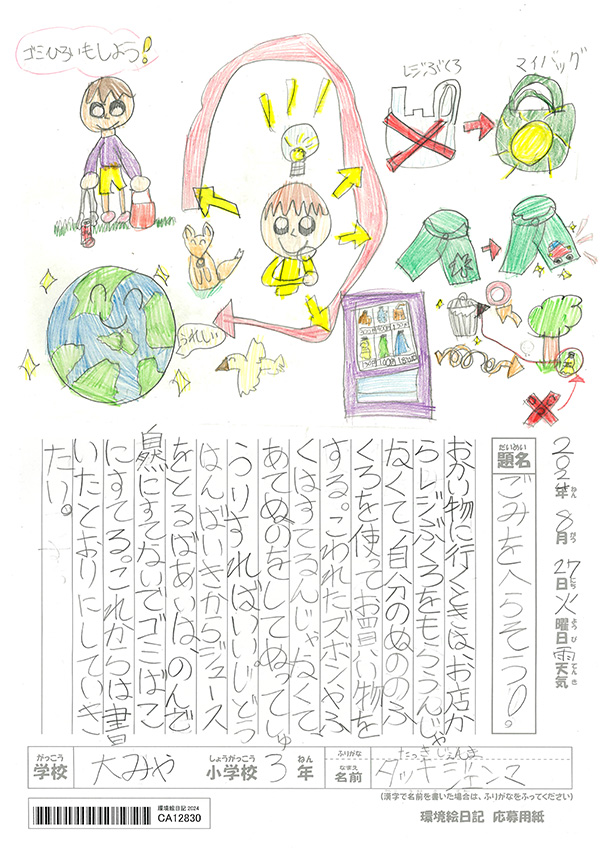 ゴミひろいもしよう!
レジぶくろ
マイバッグ
うれしい
2024年 8月 27日 火曜日 雨天気
ねん がつ にち ようび てんき
だいめい
題名
ごみをへらそう!。
おかい物に行くときは、お店か
らレジぶくろをもらうんじゃ
なくて、自分のぬののふ
くろを使ってお買い物を
する。こわれたズボンやふ
くはすてるんじゃなくて、
あてぬのをしてぬってしゅ
うりすればいい。じどう
はんばいきからジュース
をとるばあいは、のんで
自然にすてないでゴミばこ
にすてる。これからは書
いたとおりにしていき
たい。
がっこう
学校 大みや
しょうがっこう
小学校 3年
ねん
ふりがな たっきじぇんま
なまえ
名前 タッキジェンマ
(漢字で名前を書いた場合は、ふりがなをふってください)
環境絵日記 2024
CA12830
環境絵日記 応募用紙